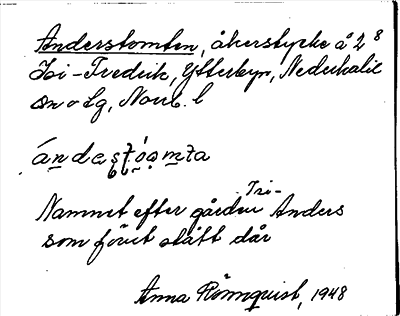 Anderstomten, åkerstycke å 2 8
Isi-Fredrik, Ytterbyn, Nederkalix
sn o lg, Norrb. l
ándaștóomta
Namnet efter gården Tri-Anders
som förut stått där
Anna Rönnquist, 1948